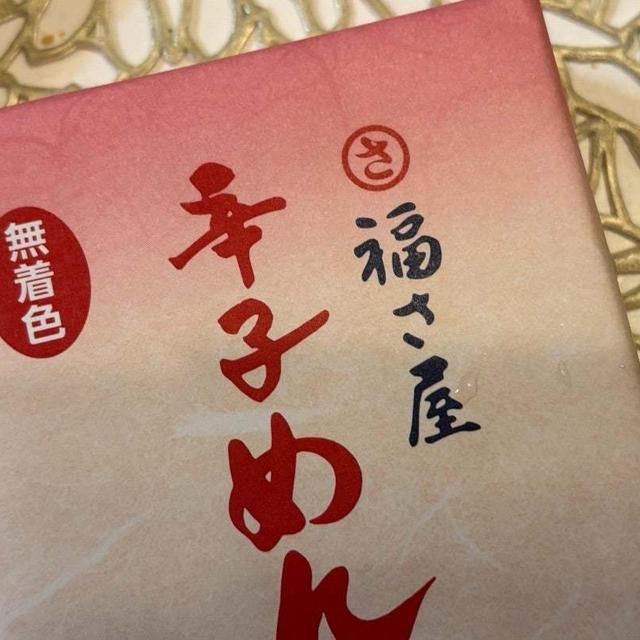 さ
福さ屋
辛子めん
無着色